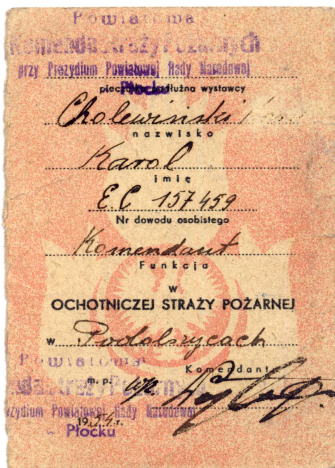 Powiatowa
Komenda Straży Pożarnych
przy Prezydium Powiatowej Rady Narodowej
Płocku
podłużna wystawcy
Cholewiński
nazwisko
Karol
imię
EC 157459
Nr dowodu osobistego
Komendant
Funkcja
w
OCHOTNICZEJ STRAŻY POŻARNEJ
w Podolszycach
Powiatowa
Komendant
m. p.
Powiatowej Rady Narodowej
19
Płocku